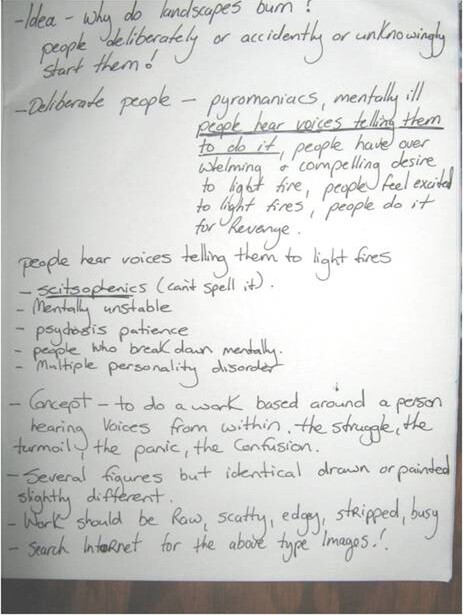 -Idea - why do landscapes burn ?
people deliberately or accidently or unknowingly
start them!
-Deliberate people - pyromaniacs, mentally ill
people hear voices telling them
to do it, people have over
whelming & compelling desire
to light fire, people feel excited
to light fires, people do it
for Revenge.
people hear voices telling them to light fires
- scitsophenics (can't spell it).
- Mentally unstable
- psychosis patience
- people who break down mentally.
- Multiple personality disorder
- Concept - to do a work based around a person
hearing Voices from within. the struggle, the
turmoil, the panic, the Confusion.
- Several figures but identical drawn or painted
slightly different.
- Work should be Raw, scatty, edgey, stripped, busy
- Search Internet for the above type Images!.